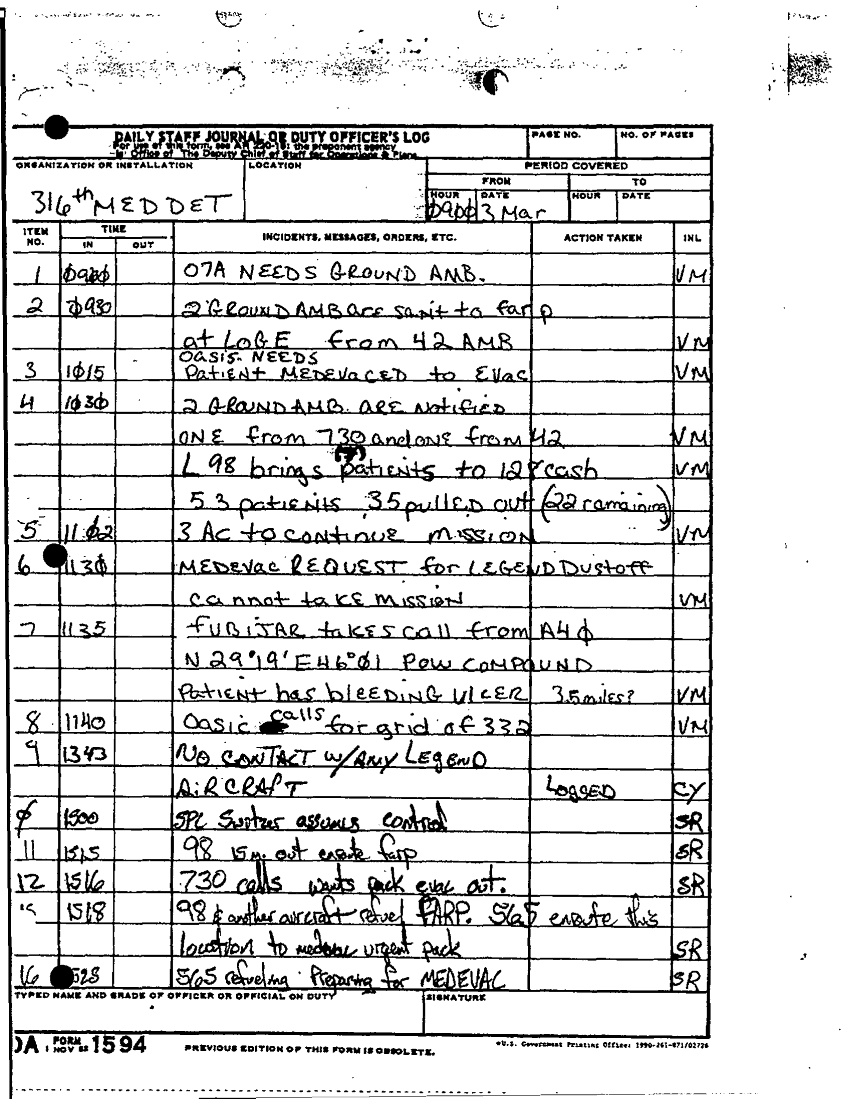 DAILY STAFF JOURNAL OR DUTY OFFICER'S LOG
For use of this form, see AR 220-15; the proponent agency
is Office of The Deputy Chief of Staff for Operations & Plans
PAGE NO.
NO. OF PAGES
ORGANIZATION OR INSTALLATION
316th MED DET
LOCATION
PERIOD COVERED
FROM TO
HOUR DATE HOUR DATE
0900 3 Mar
ITEM NO. TIME IN OUT INCIDENTS, MESSAGES, ORDERS, ETC. ACTION TAKEN INL
1 0900 07A NEEDS GROUND AMB. VM
2 0930 2 GROUND AMB are sent to farp
at LOGE from 42 AMB VM
OASIS NEEDS
3 1015 PATIENT MEDEVACED to EVAC VM
4 1030 2 GROUND AMB. ARE Notified
ONE from 730 and ONE from 42 VM
(7)
L 98 brings patients to 128 cash VM
53 patients 35 pulled out (22 remaining)
5 1102 3 AC to CONTINUE MISSION VM
6 1130 MEDEVAC REQUEST for LEGEND Dustoff
cannot take MISSION VM
7 1135 FUBIJAR takes call from A40
N 29°19' E46°01 POW COMPOUND
Patient has bleeding ulcer 35 miles? VM
8 1140 Oasis calls for grid of 332 VM
9 1343 NO CONTACT w/ANY LEGEND
AIRCRAFT LOGGED CY
0 1500 SPC Switzer assumes control SR
11 1515 98 15 m. out enroute farp SR
12 1516 730 calls wants pack evac out. SR
1518 98 & another aircraft refuel FARP. 565 enroute this
location to medevac urgent pack SR
16 1528 565 refueling. Preparing for MEDEVAC SR
TYPED NAME AND GRADE OF OFFICER OR OFFICIAL ON DUTY
SIGNATURE
DA FORM 1 NOV 62 1594
PREVIOUS EDITION OF THIS FORM IS OBSOLETE.
U.S. Government Printing Office: 1990-261-871/02726